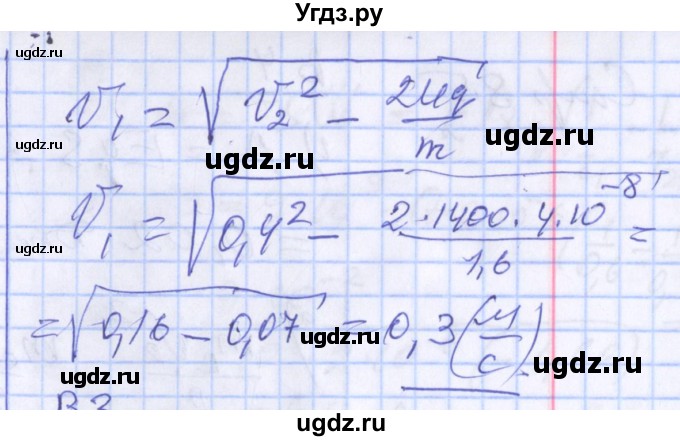 Угдз.ру
V₁ = √(V₂² − 2Uq/m)
ugdz.ru ugdz.ru ugdz.ru
V₁ = √(0,4² − 2·1400·4·10⁻⁸/1,6) =
ugdz.ru ugdz.ru
= √(0,16 − 0,07) = 0,3 (м/с)
ugdz.ru ugdz.ru ugdz.ru
ugdz.ru